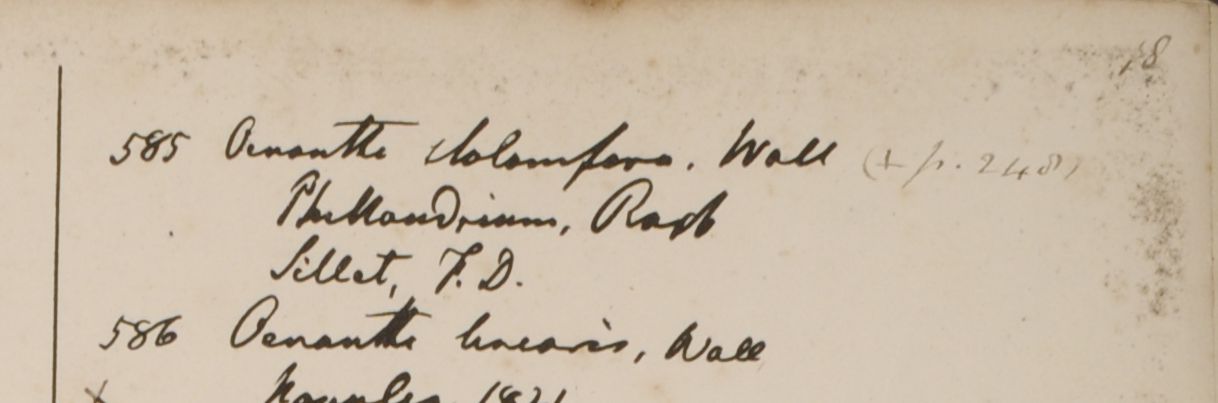 18
585 Oenanthe stolonifera. Wall (+ p. 248)
Phellandrium, Roxb
Sillet, F. D.
586 Oenanthe linearis, Wall
x 1821